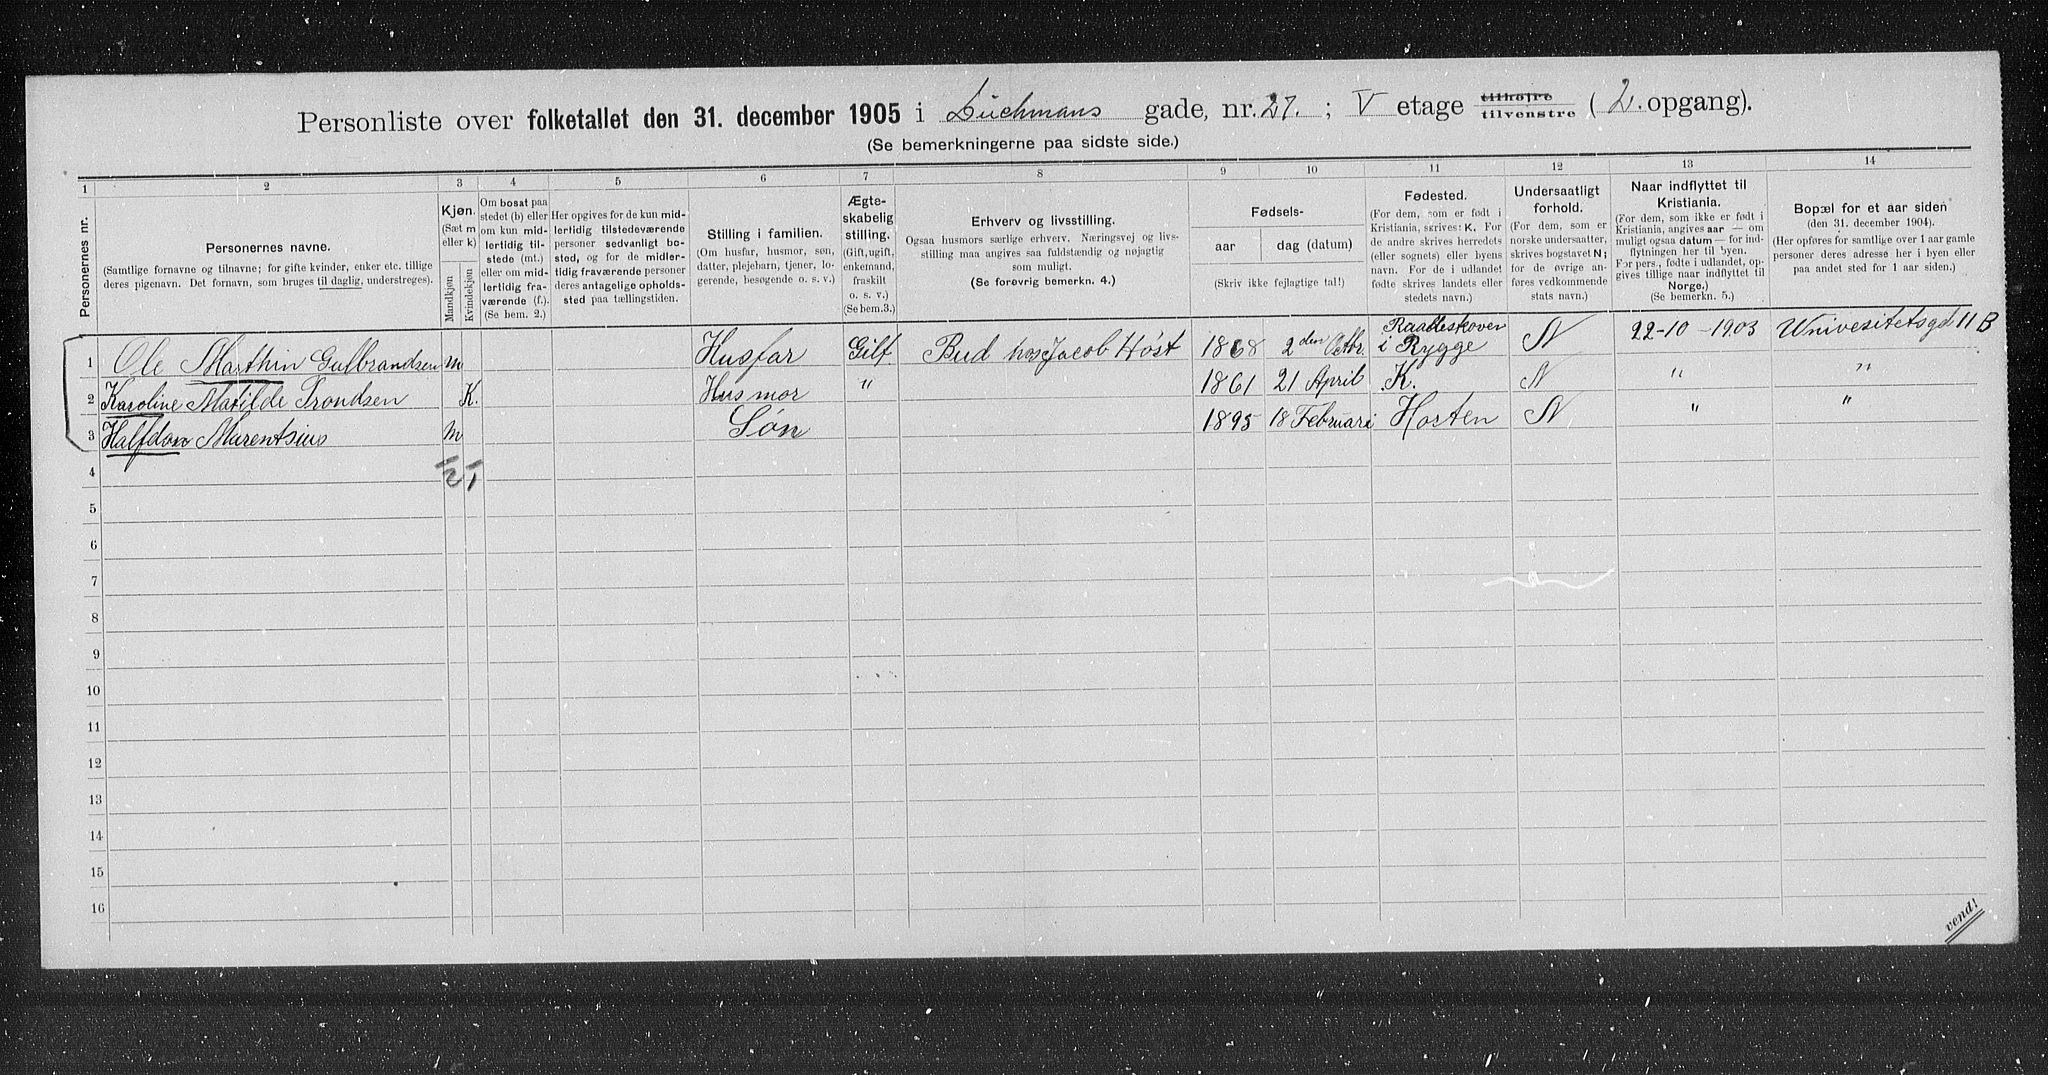 Personliste over folketallet den 31. december 1905 i Deichmans gade, nr. 27. ; V etage tilhøjre tilvenstre ( 2. opgang).
(Se bemerkningerne paa sidste side.)
1 2 3 4 5 6 7 8 9 10 11 12 13 14
Personernes nr.
Personernes navne.
(Samtlige fornavne og tilnavne; for gifte kvinder, enker etc. tillige
deres pigenavn. Det fornavn, som bruges til daglig, understreges).
Kjøn.
(Sæt m
eller k)
Mandkjøn
Kvindekjøn
Om bosat paa
stedet (b) eller
om kun mid-
lertidig til-
stede (mt.)
eller om mid-
lertidig fra-
værende (f.).
(Se bem. 2.)
Her opgives for de kun mid-
lertidig tilstedeværende
personer sedvanlig bo-
sted, og for de midler-
tidig fraværende personer
deres antagelige opholds-
sted paa tællingstiden.
Stilling i familien.
(Om husfar, husmor, søn,
datter, plejebarn, tjener, lo-
gerende, besøgende o. s. v.)
Ægte-
skabelig
stilling.
(Gift, ugift,
enkemand,
fraskilt
o. s. v.)
(Se bem.3.)
Erhverv og livsstilling.
Ogsaa husmors særlige erhverv. Næringsvej og livs-
stilling maa angives saa fuldstændig og nøjagtig
som muligt.
(Se forøvrig bemerkn. 4.)
Fødsels-
aar
dag (datum)
(Skriv ikke fejlagtige tal!)
Fødested.
(For dem, som er født i
Kristiania, skrives: K. For
de andre skrives herredets
(eller sognets) eller byens
navn. For de i udlandet
fødte skrives landets eller
stedets navn.)
Undersaatligt
forhold.
(For dem, som er
norske undersaatter,
skrives bogstavet N;
for de øvrige an-
føres vedkommende
stats navn.)
Naar indflyttet til
Kristiania.
(For dem, som ikke er født i
Kristiania, angives aar — om
muligt ogsaa datum — for ind-
flytningen her til byen.
For pers., fødte i udlandet, op-
gives tillige naar indflyttet til
Norge.)
(Se bemerkn. 5.)
Bopæl for et aar siden
(den 31. december 1904).
(Her opføres for samtlige over 1 aar gamle
personer deres adresse her i byen eller
paa andet sted for 1 aar siden.)
1 Ole Marthin Gulbrandsen m Husfar Gift Bud hos Jacob Høst 1868 2den Octbr. Raadeskoven i Rygge N 22-10-1903 Univesitetsgd 11 B
2 Karoline Matilde Trondsen K. Husmor " 1861 21 April K. N " "
3 Halfdan Marentsius m Søn 1895 18 Februari Horten N " "
4 2 1
5
6
7
8
9
10
11
12
13
14
15
16
vend!